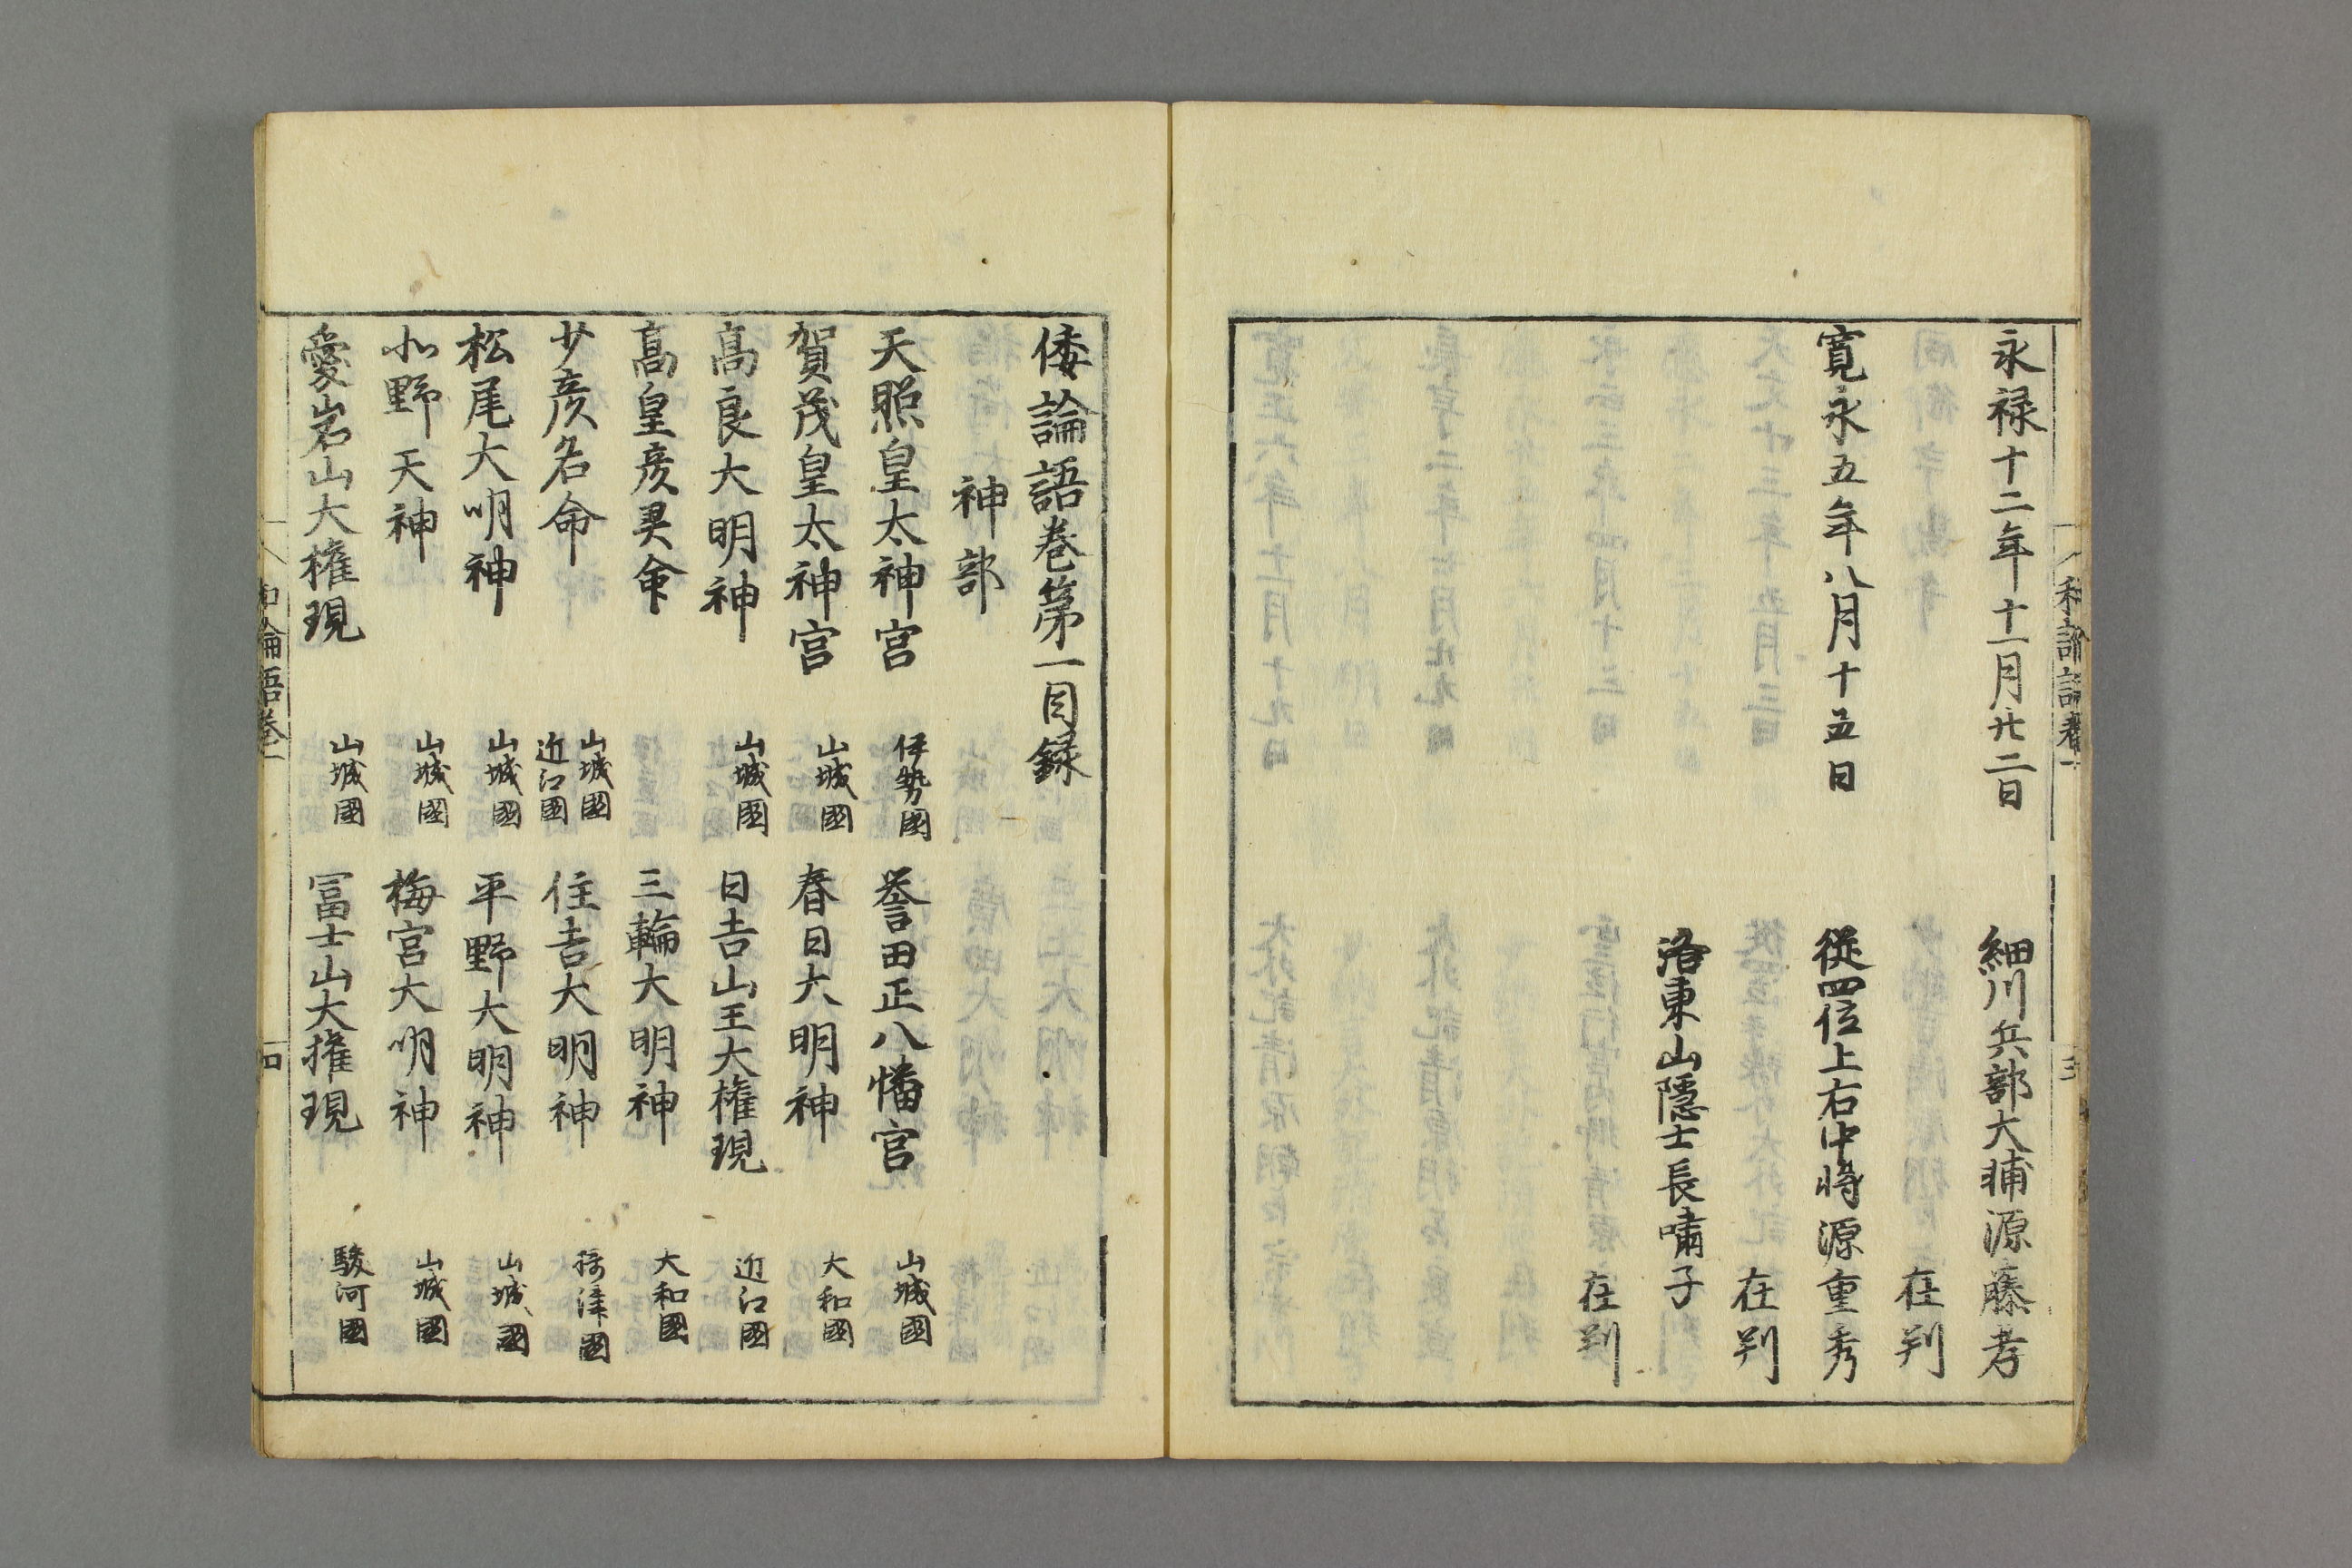 永禄十二年十一月廿二日　細川兵部大輔源藤孝
在判
寛永五年八月十五日　従四位上右中将源重秀
在判
洛東山隠士長嘯子
在判
倭論語巻第一目録
神部
天照皇太神宮　伊勢國　誉田正八幡宮　山城國
賀茂皇太神宮　山城國　春日大明神　大和國
高良大明神　山城國　日吉山王大権現　近江國
高皇彦灵命　三輪大明神　大和國
少彦名命　山城國　近江國　住吉大明神　摂津國
松尾大明神　山城國　平野大明神　山城國
北野天神　山城國　梅宮大明神　山城國
愛宕山大権現　山城國　冨士山大権現　駿河國